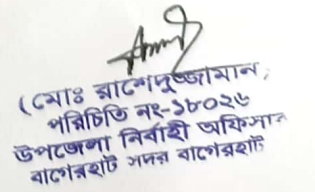 (মোঃ রাশেদুজ্জামান)
পরিচিতি নং-১৮০২৬
উপজেলা নির্বাহী অফিসার
বাগেরহাট সদর বাগেরহাট